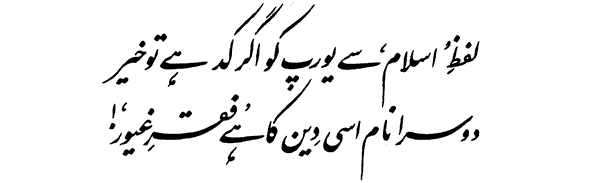 لفظِ 'اسلام' سے یورپ کو اگر کد ہے تو خیر
دوسرا نام اسی دِین کا ہے 'فقرِ غیور'!